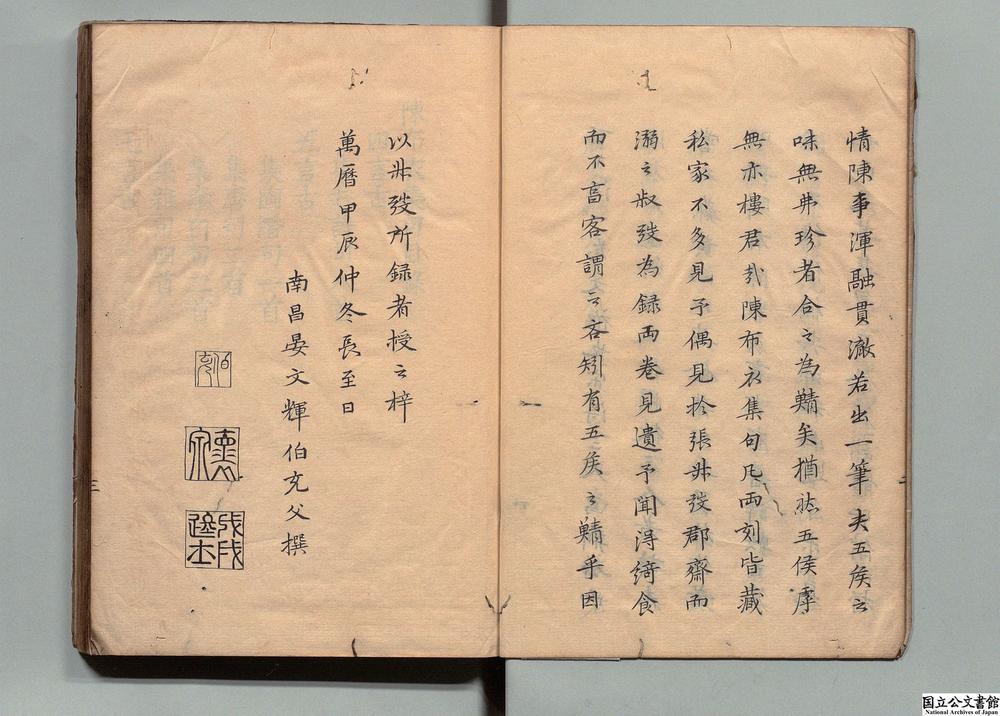 情陳事渾融貫澈若出一筆夫五侯之
味無弗珍者合之為鯖矣猶然五侯庖
無亦樓君哉陳布衣集句凡兩刻皆藏
私家不多見予偶見於張叔弢郡齋而
溺之叔弢為録兩卷見遺予聞淂綺食
而不畜客謂之吝矧有五侯之鯖乎因
以叔弢所録者授之梓
萬曆甲辰仲冬長至日
南昌晏文輝伯充父撰
伯充
懷泉
戊戌進士
国立公文書館
National Archives of Japan